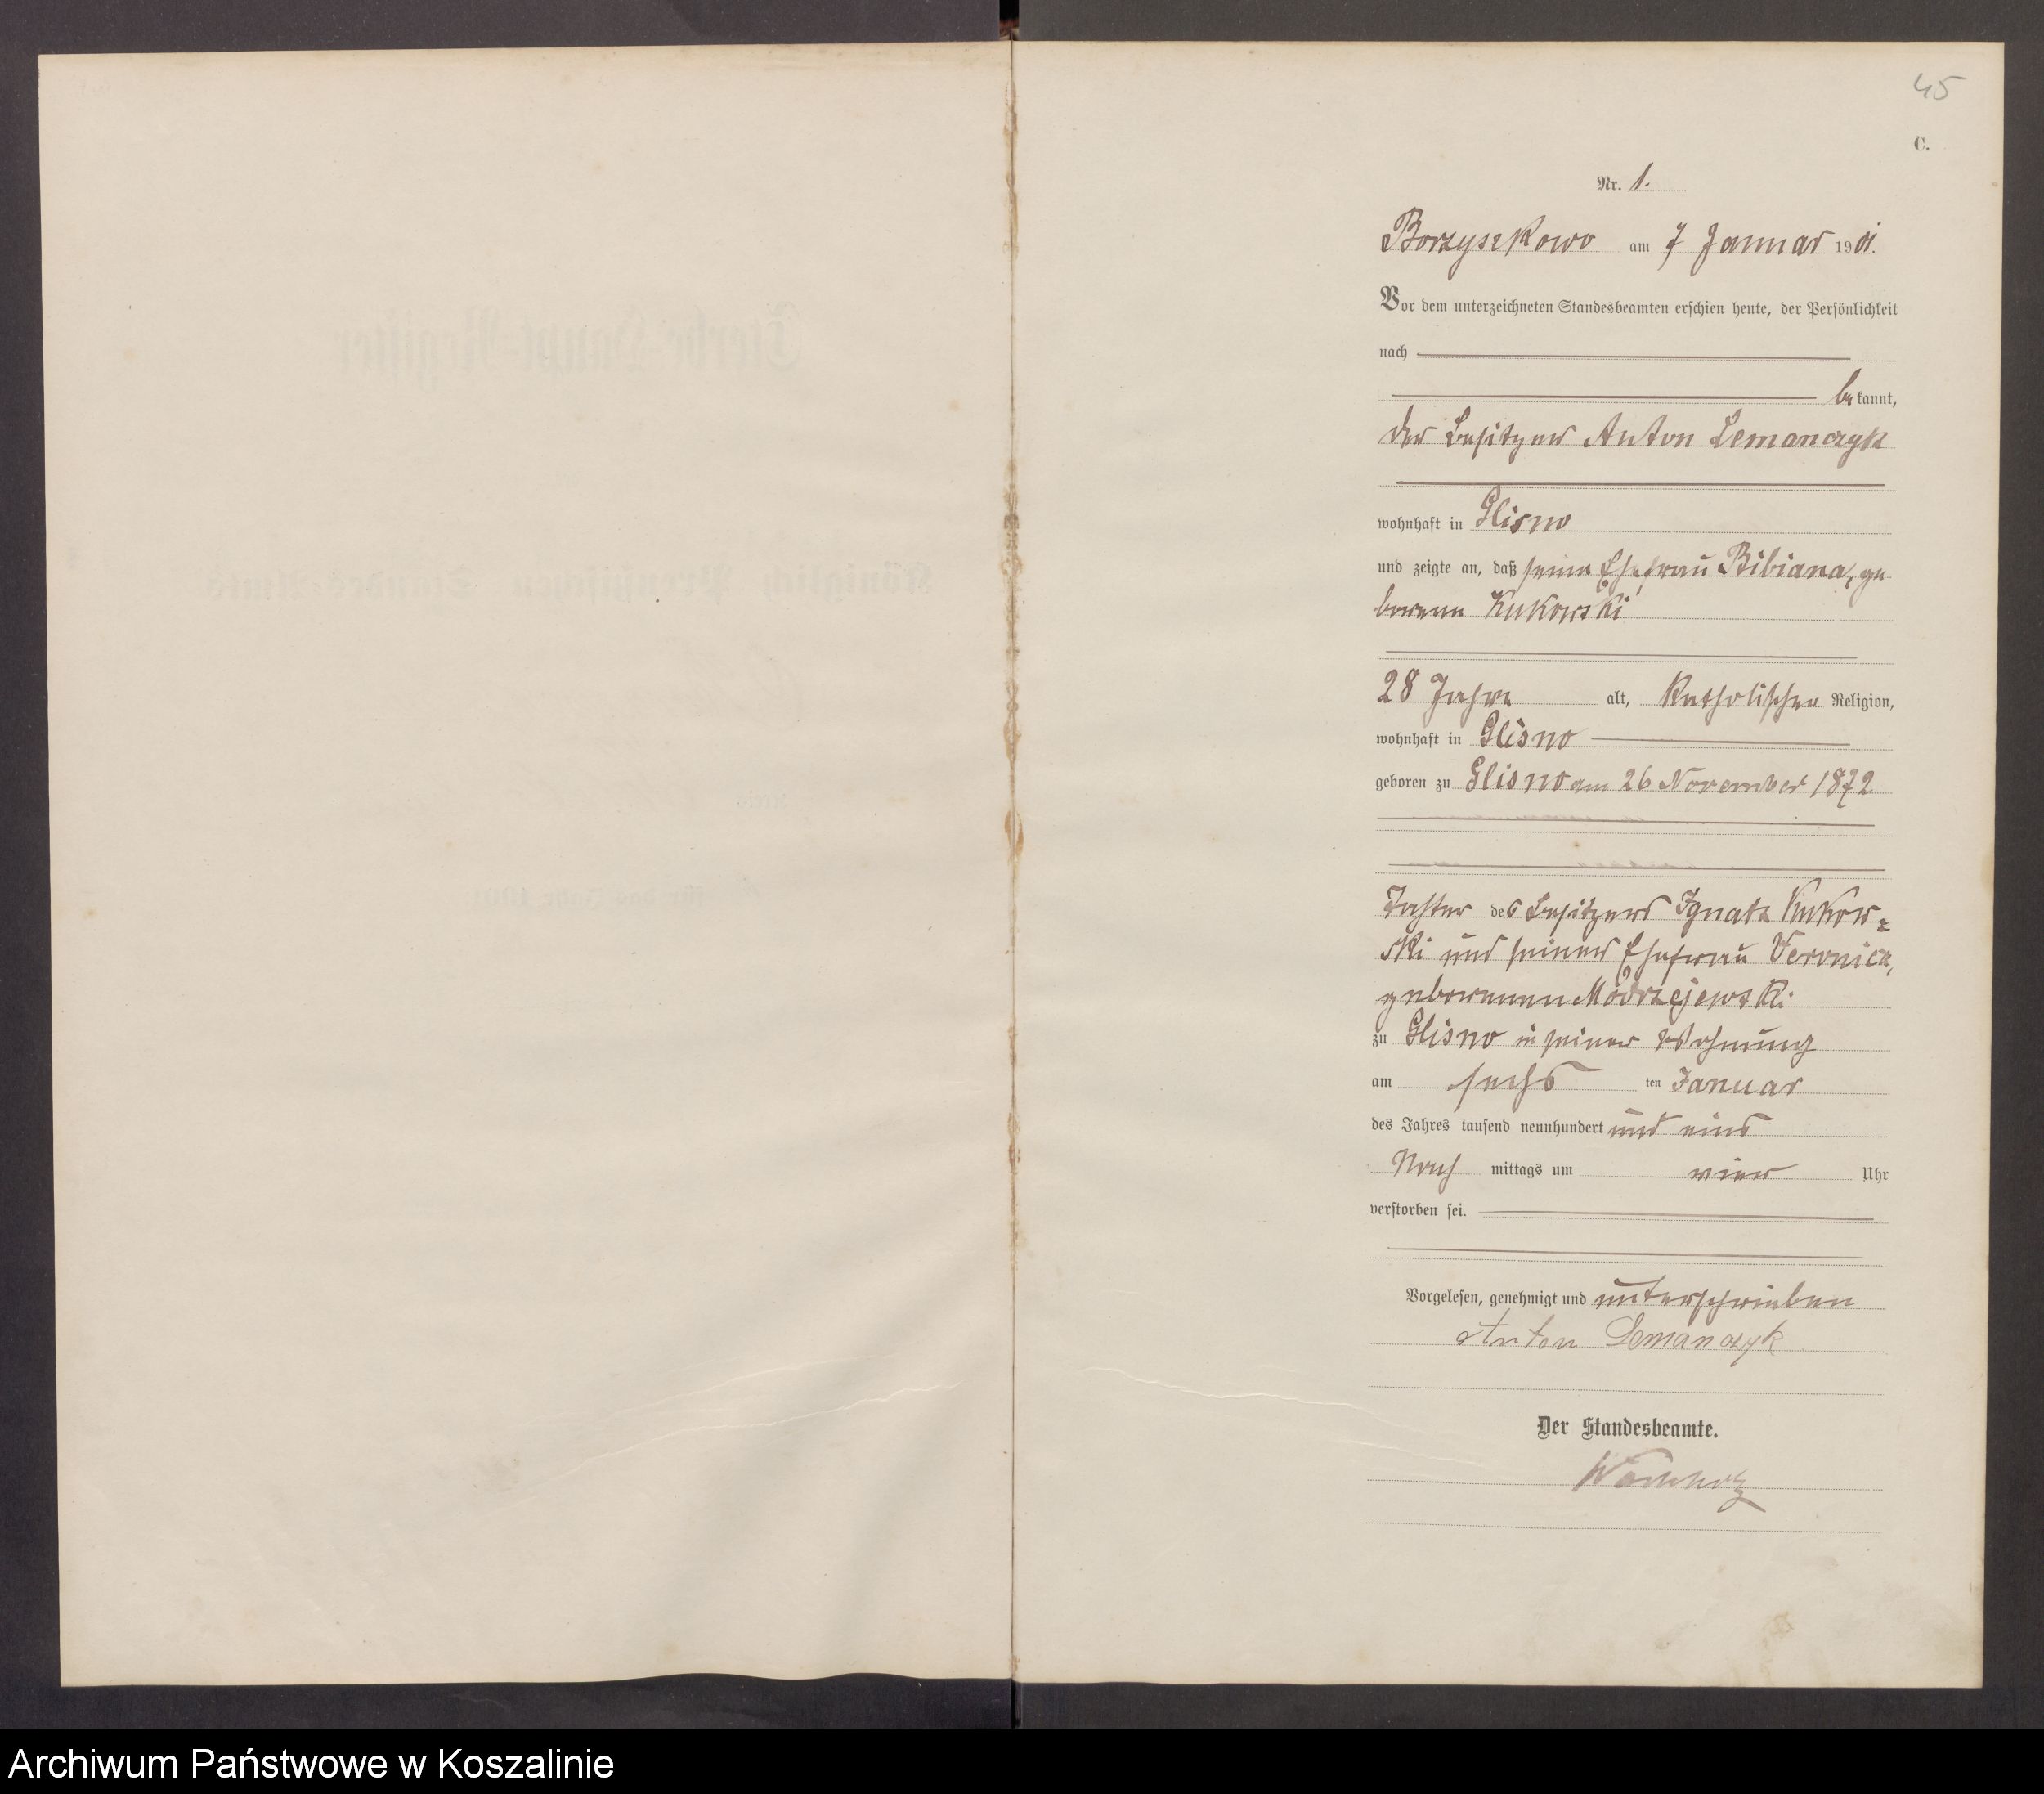 45
C.
Nr. 1.
Borzyszkowo am 7 Januar 1901.
Vor dem unterzeichneten Standesbeamten erschien heute, der Persönlichkeit
nach
bekannt,
der Besitzer Anton Lemanczyk
wohnhaft in Glisno
und zeigte an, daß seine Ehefrau Bibiana, ge
borene Kukowski
28 Jahre alt, katholischer Religion,
wohnhaft in Glisno
geboren zu Glisno am 26 November 1872
Tochter des Besitzers Ignatz Kukow=
ski und seiner Ehefrau Veronica,
geborenen Modrzejewski
zu Glisno in seiner Wohnung
am sechs ten Januar
des Jahres tausend neunhundert und eins
Nach mittags um vier Uhr
verstorben sei.
Vorgelesen, genehmigt und unterschrieben
Anton Lemanczyk
Der Standesbeamte.
Sterbe-Haupt-Register
Königlich Preußischen Standes-Amts
für das Jahr 1901
Archiwum Państwowe w Koszalinie